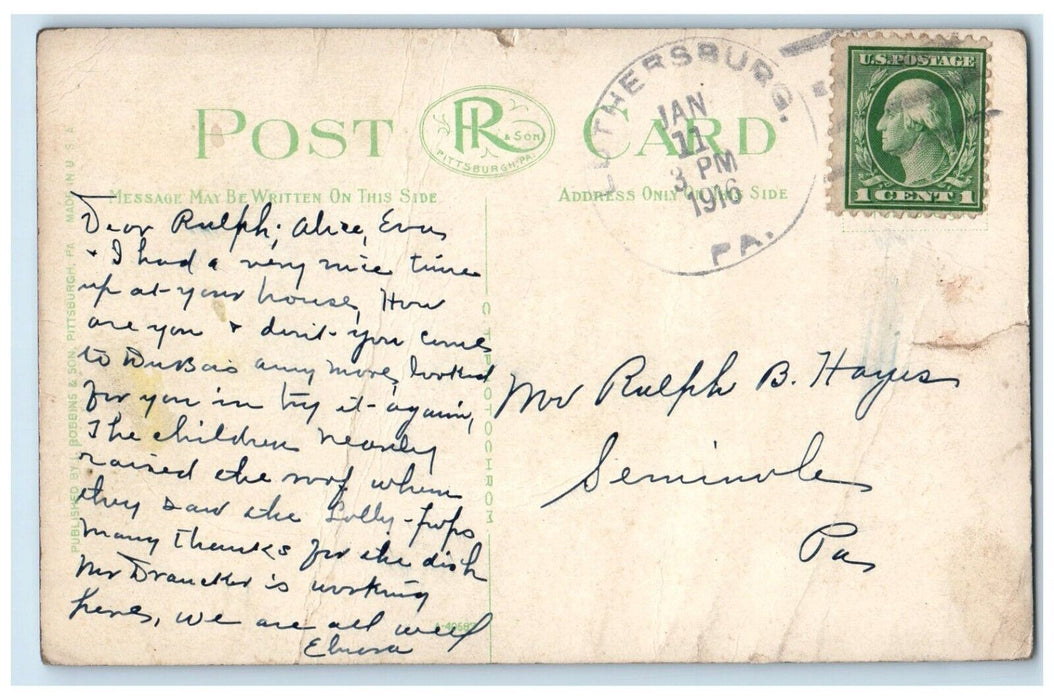 POST CARD
R & SON
PITTSBURGH, PA.
MESSAGE MAY BE WRITTEN ON THIS SIDE
ADDRESS ONLY ON THIS SIDE
LUTHERSBURG,
JAN
11
3 PM
1916
PA.
U.S. POSTAGE
1 CENT 1
PUBLISHED BY I. ROBBINS & SON, PITTSBURGH, PA. MADE IN U. S. A.
C. T. PHOTOCHROM
Dear Ralph, Alice, Eva
& I had a very nice time
up at your house, How
are you & don't you come
to DuBois any more, looked
for you in try it again,
The children nearly
raised the roof when
they saw the Lolly-pops
many thanks for the dish
Mr Draucker is working
here, we are all well
Elnora
Mr Ralph B. Hayes
Seminole
Pa